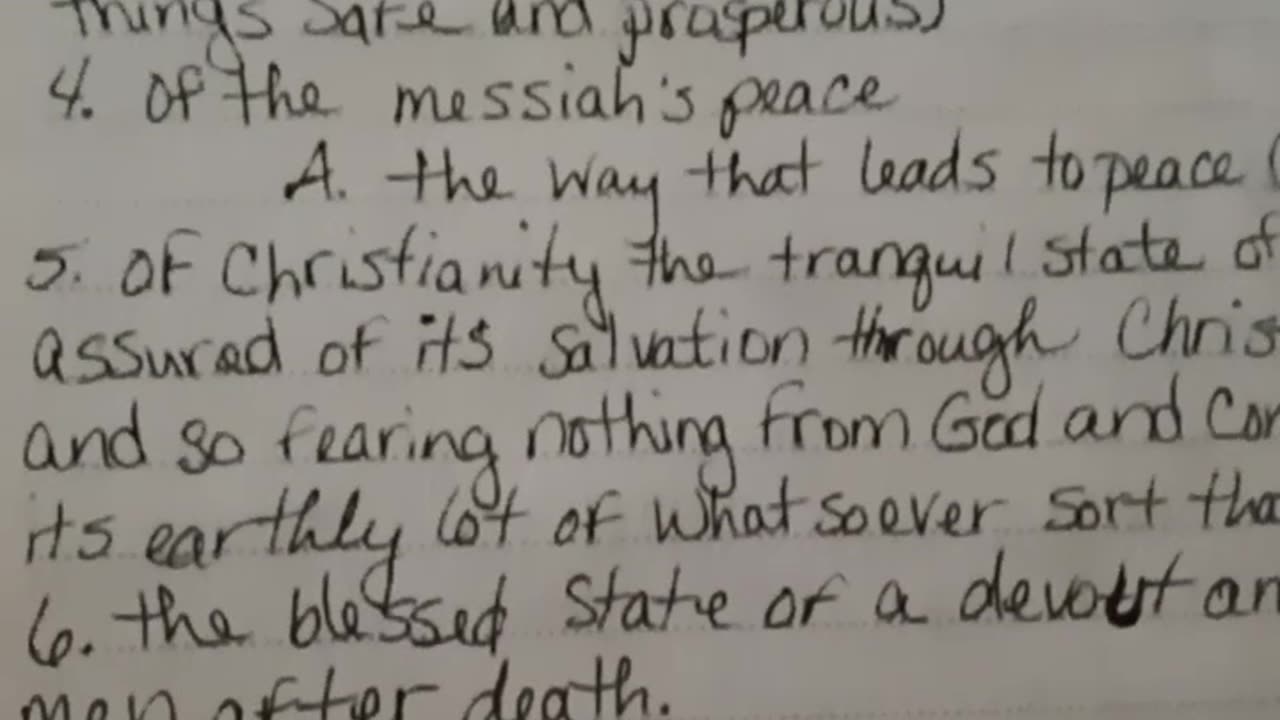 things safe and prosperous)
4. of the messiah's peace
A. the way that leads to peace (
5. of Christianity the tranquil state of
assured of its salvation through Chris
and so fearing nothing from God and Con
its earthly lot of whatsoever sort tha
6. the blessed state of a devout an
men after death.